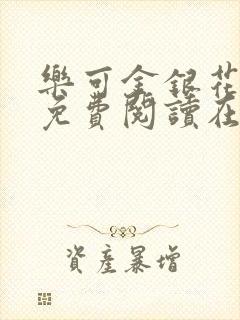 樂可金銀花
免費閱讀在
資產暴增